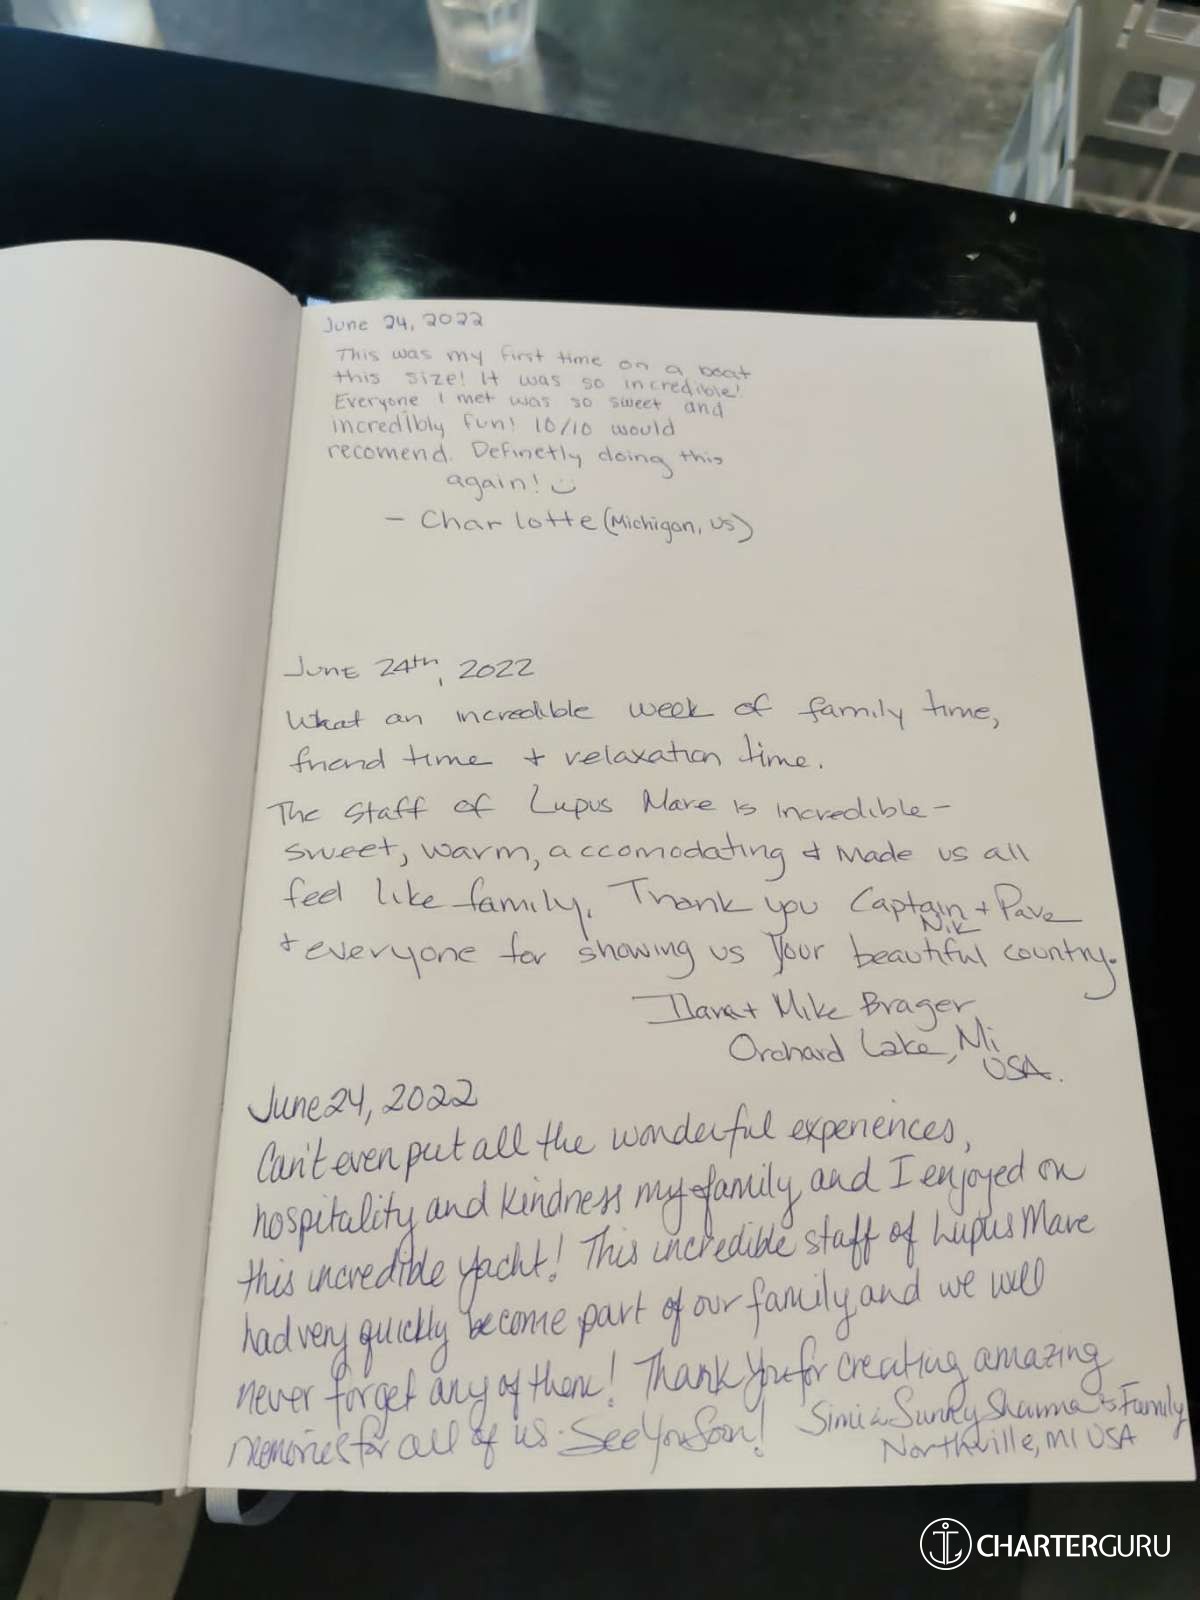 June 24, 2022
This was my first time on a boat
this size! It was so incredible!
Everyone I met was so sweet and
incredibly fun! 10/10 would
recomend. Definetly doing this
again!
- Charlotte (Michigan, US)
June 24th, 2022
What an incredible week of family time,
friend time + relaxation time.
The staff of Lupus Mare is incredible -
sweet, warm, accomodating & made us all
feel like family. Thank you Captain + Pave
Nik
+ everyone for showing us your beautiful country.
Mike Brager
Orchard Lake, Mi
USA.
June 24, 2022
Can't even put all the wonderful experiences,
hospitality and kindness my family and I enjoyed on
this incredible yacht! This incredible staff of Lupus Mare
had very quickly become part of our family and we will
never forget any of them! Thank you for creating amazing
memories for all of us. See You Soon!
Simi & Sunny Sharma & Family
Northville, MI USA
CHARTERGURU